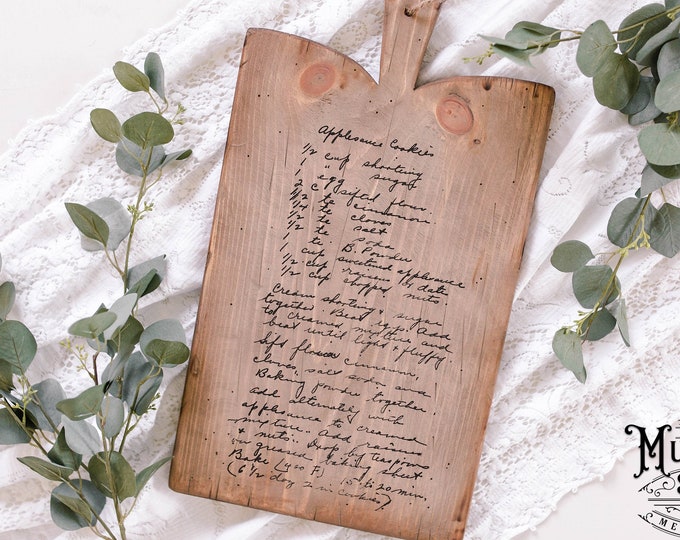 Applesauce Cookies
1/2 cup shorting
1 " sugar
1 egg
2 c sifted flour
1/2 te cinnamon
1/4 te cloves
1/2 te salt
1/2 te soda
1 te. B. Powder
1 cup sweetened applesauce
1/2 cup raisins or dates
1/2 cup chopped nuts.
Cream shorting & sugar
together. Beat egg. Add
to creamed mixture and
beat until light & fluffy.
Sift flour cinnamon,
cloves, salt soda and
Baking powder together.
add alternately with
applesauce to creamed
mixture. Add raisins
& nuts. Drop by teaspoons
on greased baking sheet.
Bake (400 F) 15 to 20 min.
(6 1/2 doz 2 in cookies)